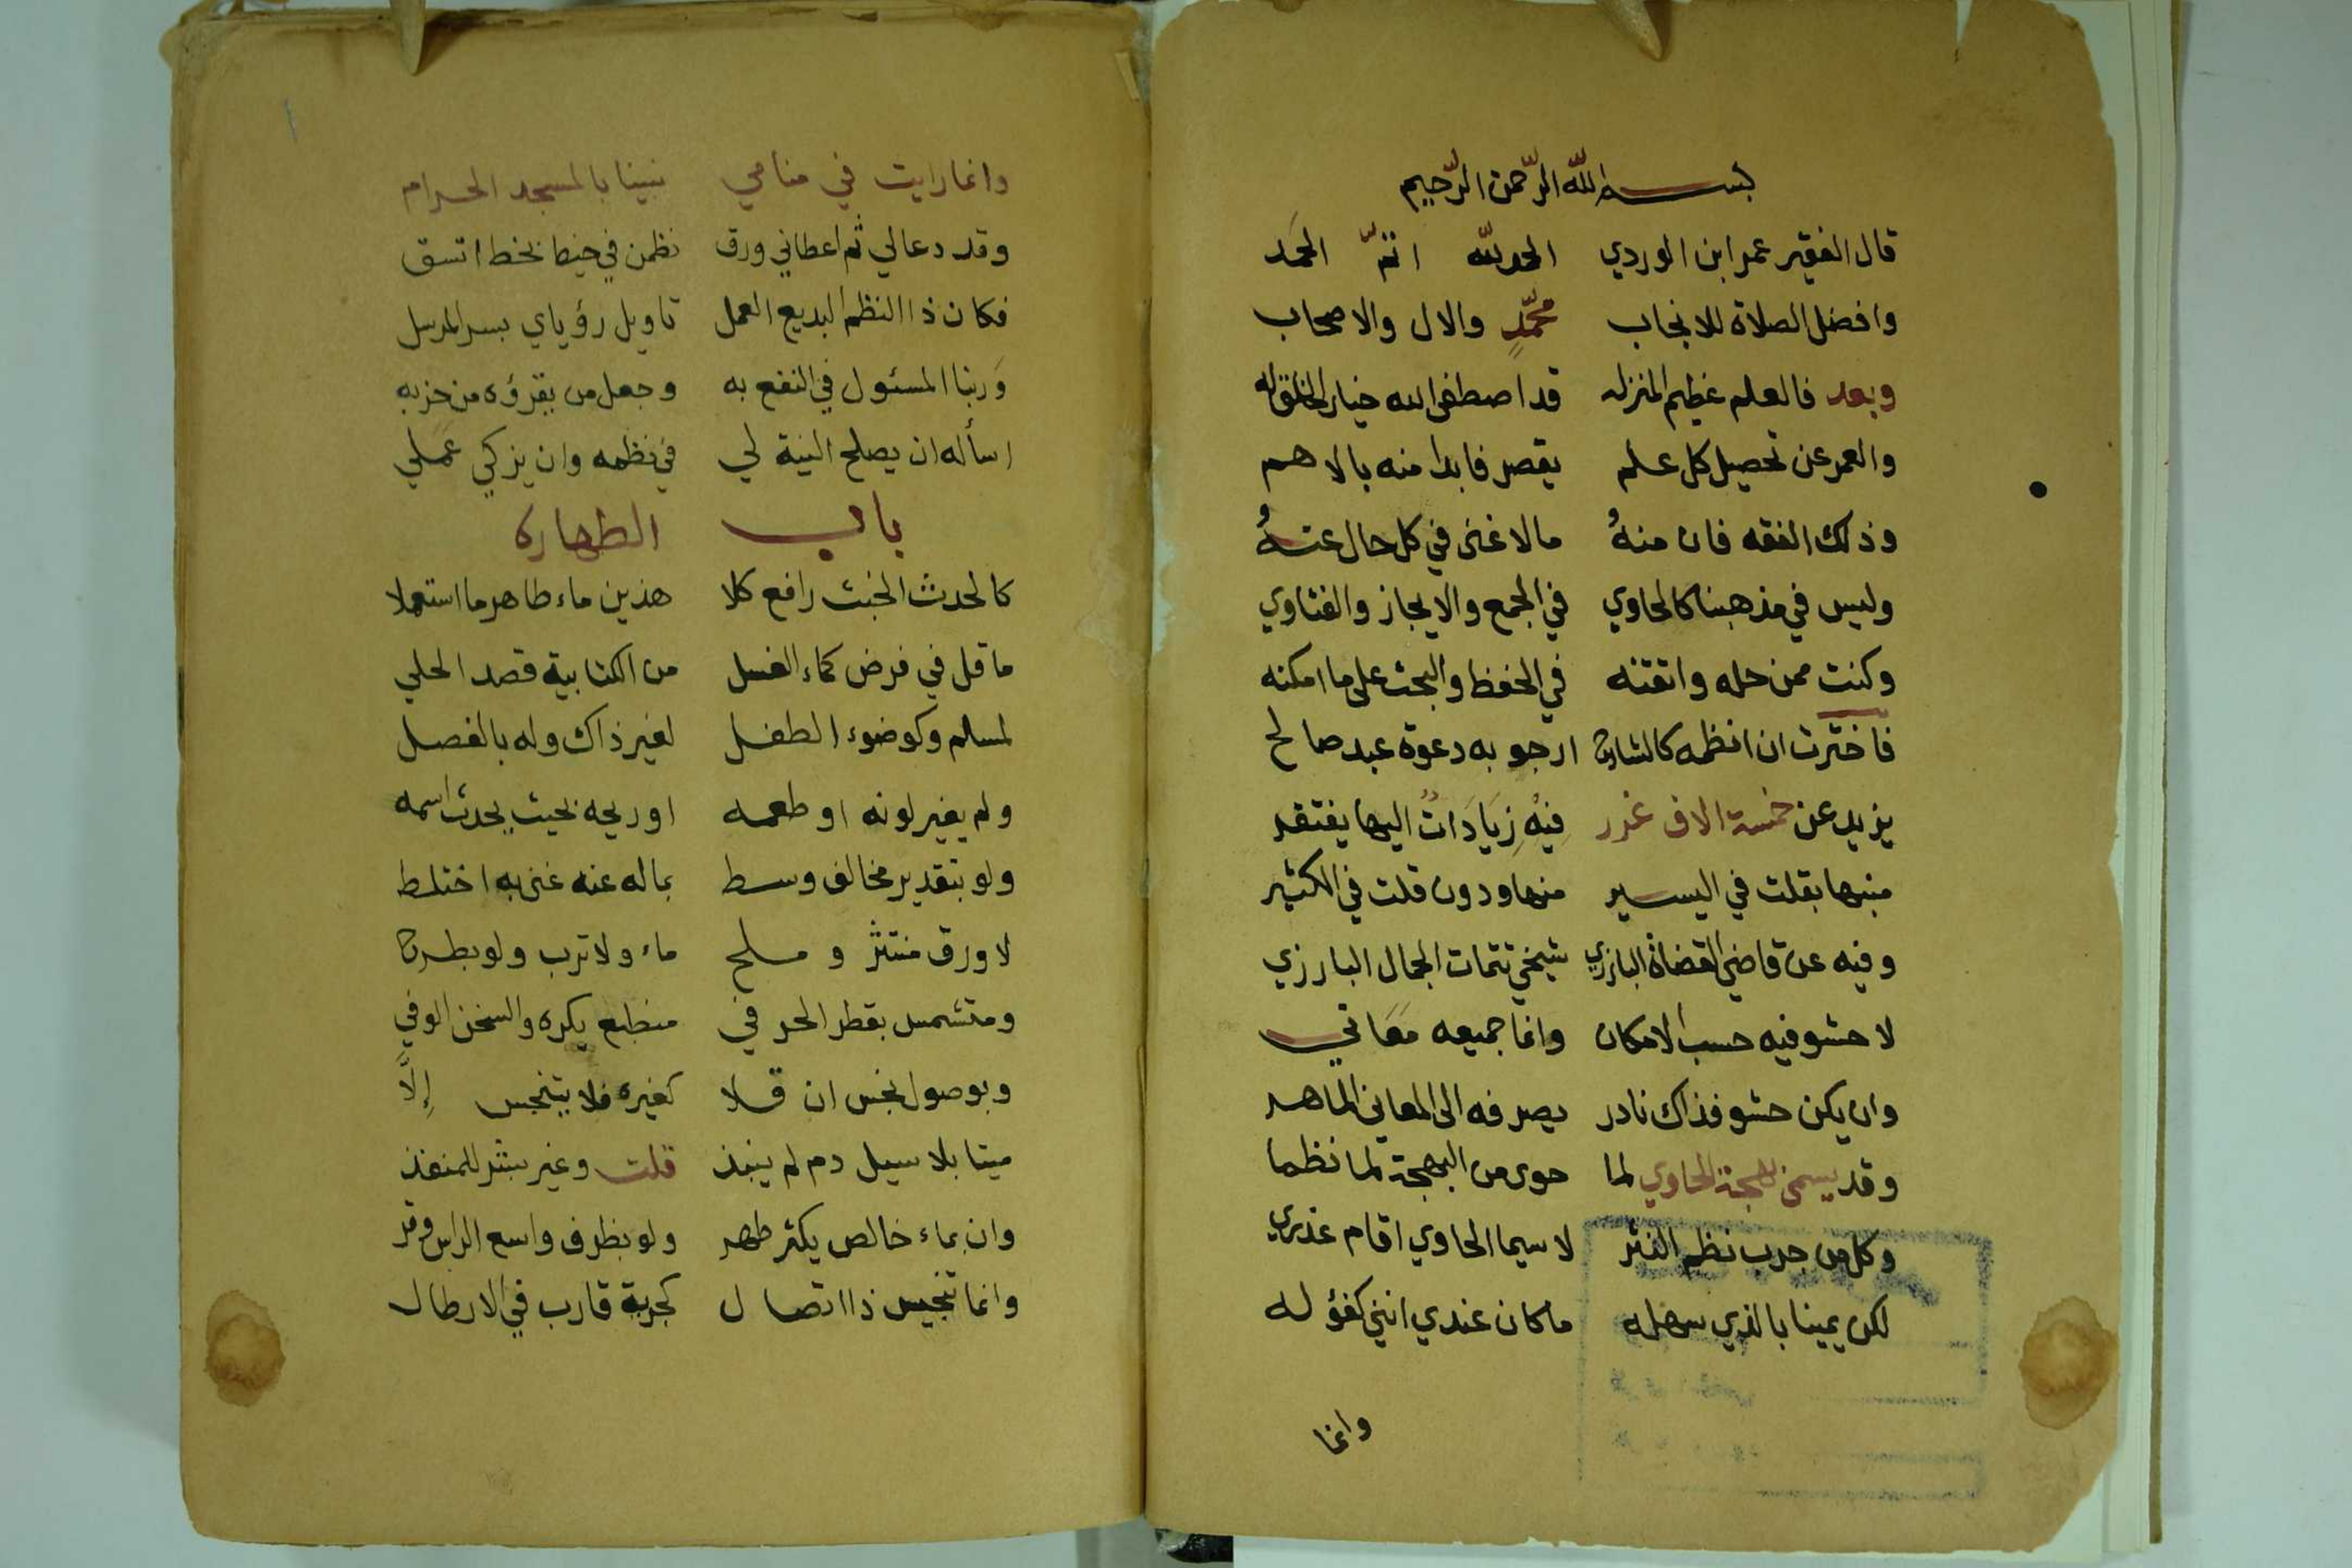 بسم الله الرّحمن الرّحيم
قال الفقير عمر ابن الوردي الحمد لله اتمّ الحمَد
وافضل الصلاة للانجاب محمّدٍ والال والاصحاب
وبعد فالعلم عظيم المنزله قد اصطفى الله خيار الخلق له
والعمر عن تحصيل كل علم يقصر فابدا منه بالاهم
وذلك الفقه فان منهُ مالا غنى في كل حال عنهُ
وليس في مذهبنا كالحاوي في الجمع والايجاز والفتاوي
وكنت ممن حله واتقنه في الحفظ والبحث على ما امكنه
فاخترت ان انظمه كالشارح ارجو به دعوة عبد صالح
يزيد عن خمسة الاف غرر فيْهِ زيَادَاتٌ اليها يفتقد
منبها بقلت في اليسير منها ودون قلت في الكثير
وفيه عن قاضي القضاة البارزي شيخي تتمات الجمال البارزي
لا حشو فيه حسب الامكان وانما جميعه مَعَاني
وان يكن حشو فذاك نادر يصرفه الى المعاني الماهر
وقد يسمى بهجة الحاوي لما حوى من البهجة لما نظما
وكل من جرب نظم النثر لاسيما الحاوي اقام عذري
لكن يمينا بالذي سهله ما كان عندي انني كفؤ له
وانما
وانما رايت في منامي نبينا بالمسجد الحرام
وقد دعا لي ثم اعطاني ورق نظمن في خيط بخط اتسق
فكان ذا النظم البديع العمل تاويل رؤياي بسر المرسل
وَربنا المسئول في النفع به وجعل من يقرؤه من حزبه
اسأله ان يصلح النية لي في نظمه وان يزكي عَملي
باب الطهاره
كالحدث الخبث رافع كلا هذين ماء طاهر ما استعملا
ما قل في فرض كماء الغسل من الكتابية قصد الحلي
لمسلم وكوضوء الطفل لغير ذاك وله بالفصل
ولم يغير لونه او طعمه او ريحه بحيث يحدث اسمه
ولو بتقدير مخالف وسط بما له عنه غنى به اختلط
لا ورق منتثر و مسلح ماء ولا ترب ولو بطرح
ومتشمس بقطر الحر في منطبع يكره والسخن الوفي
وبوصول نجس ان قلا كغيره فلا يتنجس إلَّا
ميتا بلا سيل دم لم ينبذ قلت وغير بثر للمنفذ
وان بماء خالص يكثر طهر ولو بظرف واسع الراس وقر
وانما تنجيس ذا اتصال كجرية قارب في الارطال